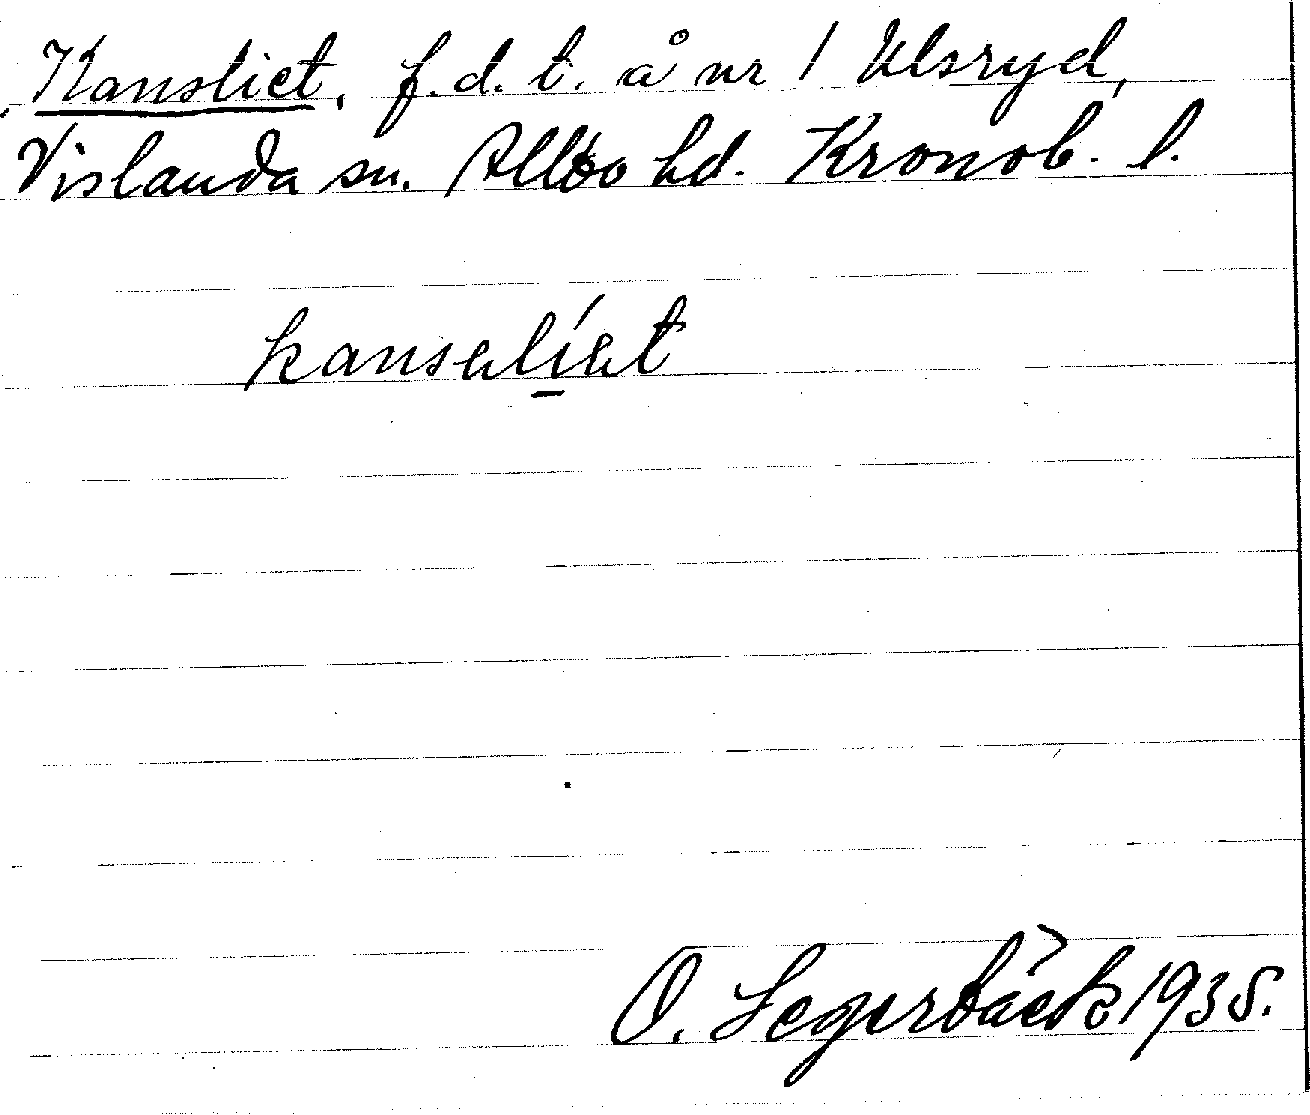 Kansliet, f.d. t. å nr 1 Ulsryd,
Vislanda sn. Allbo hd. Kronob. l.
kansəlíət
O. Segerbäck 1935.